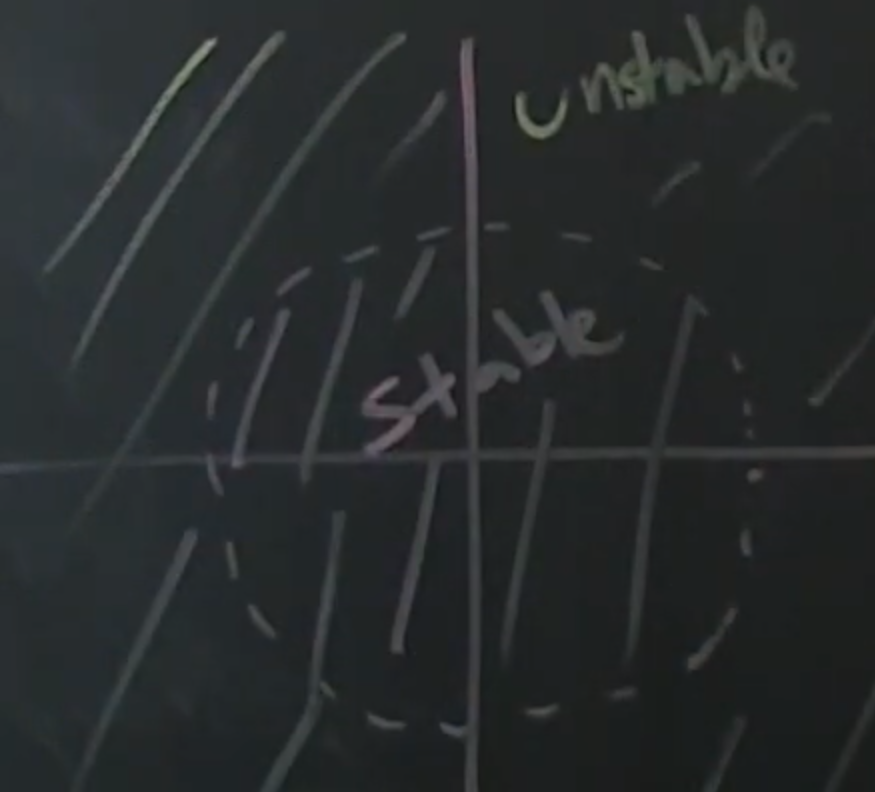 Unstable
Stable